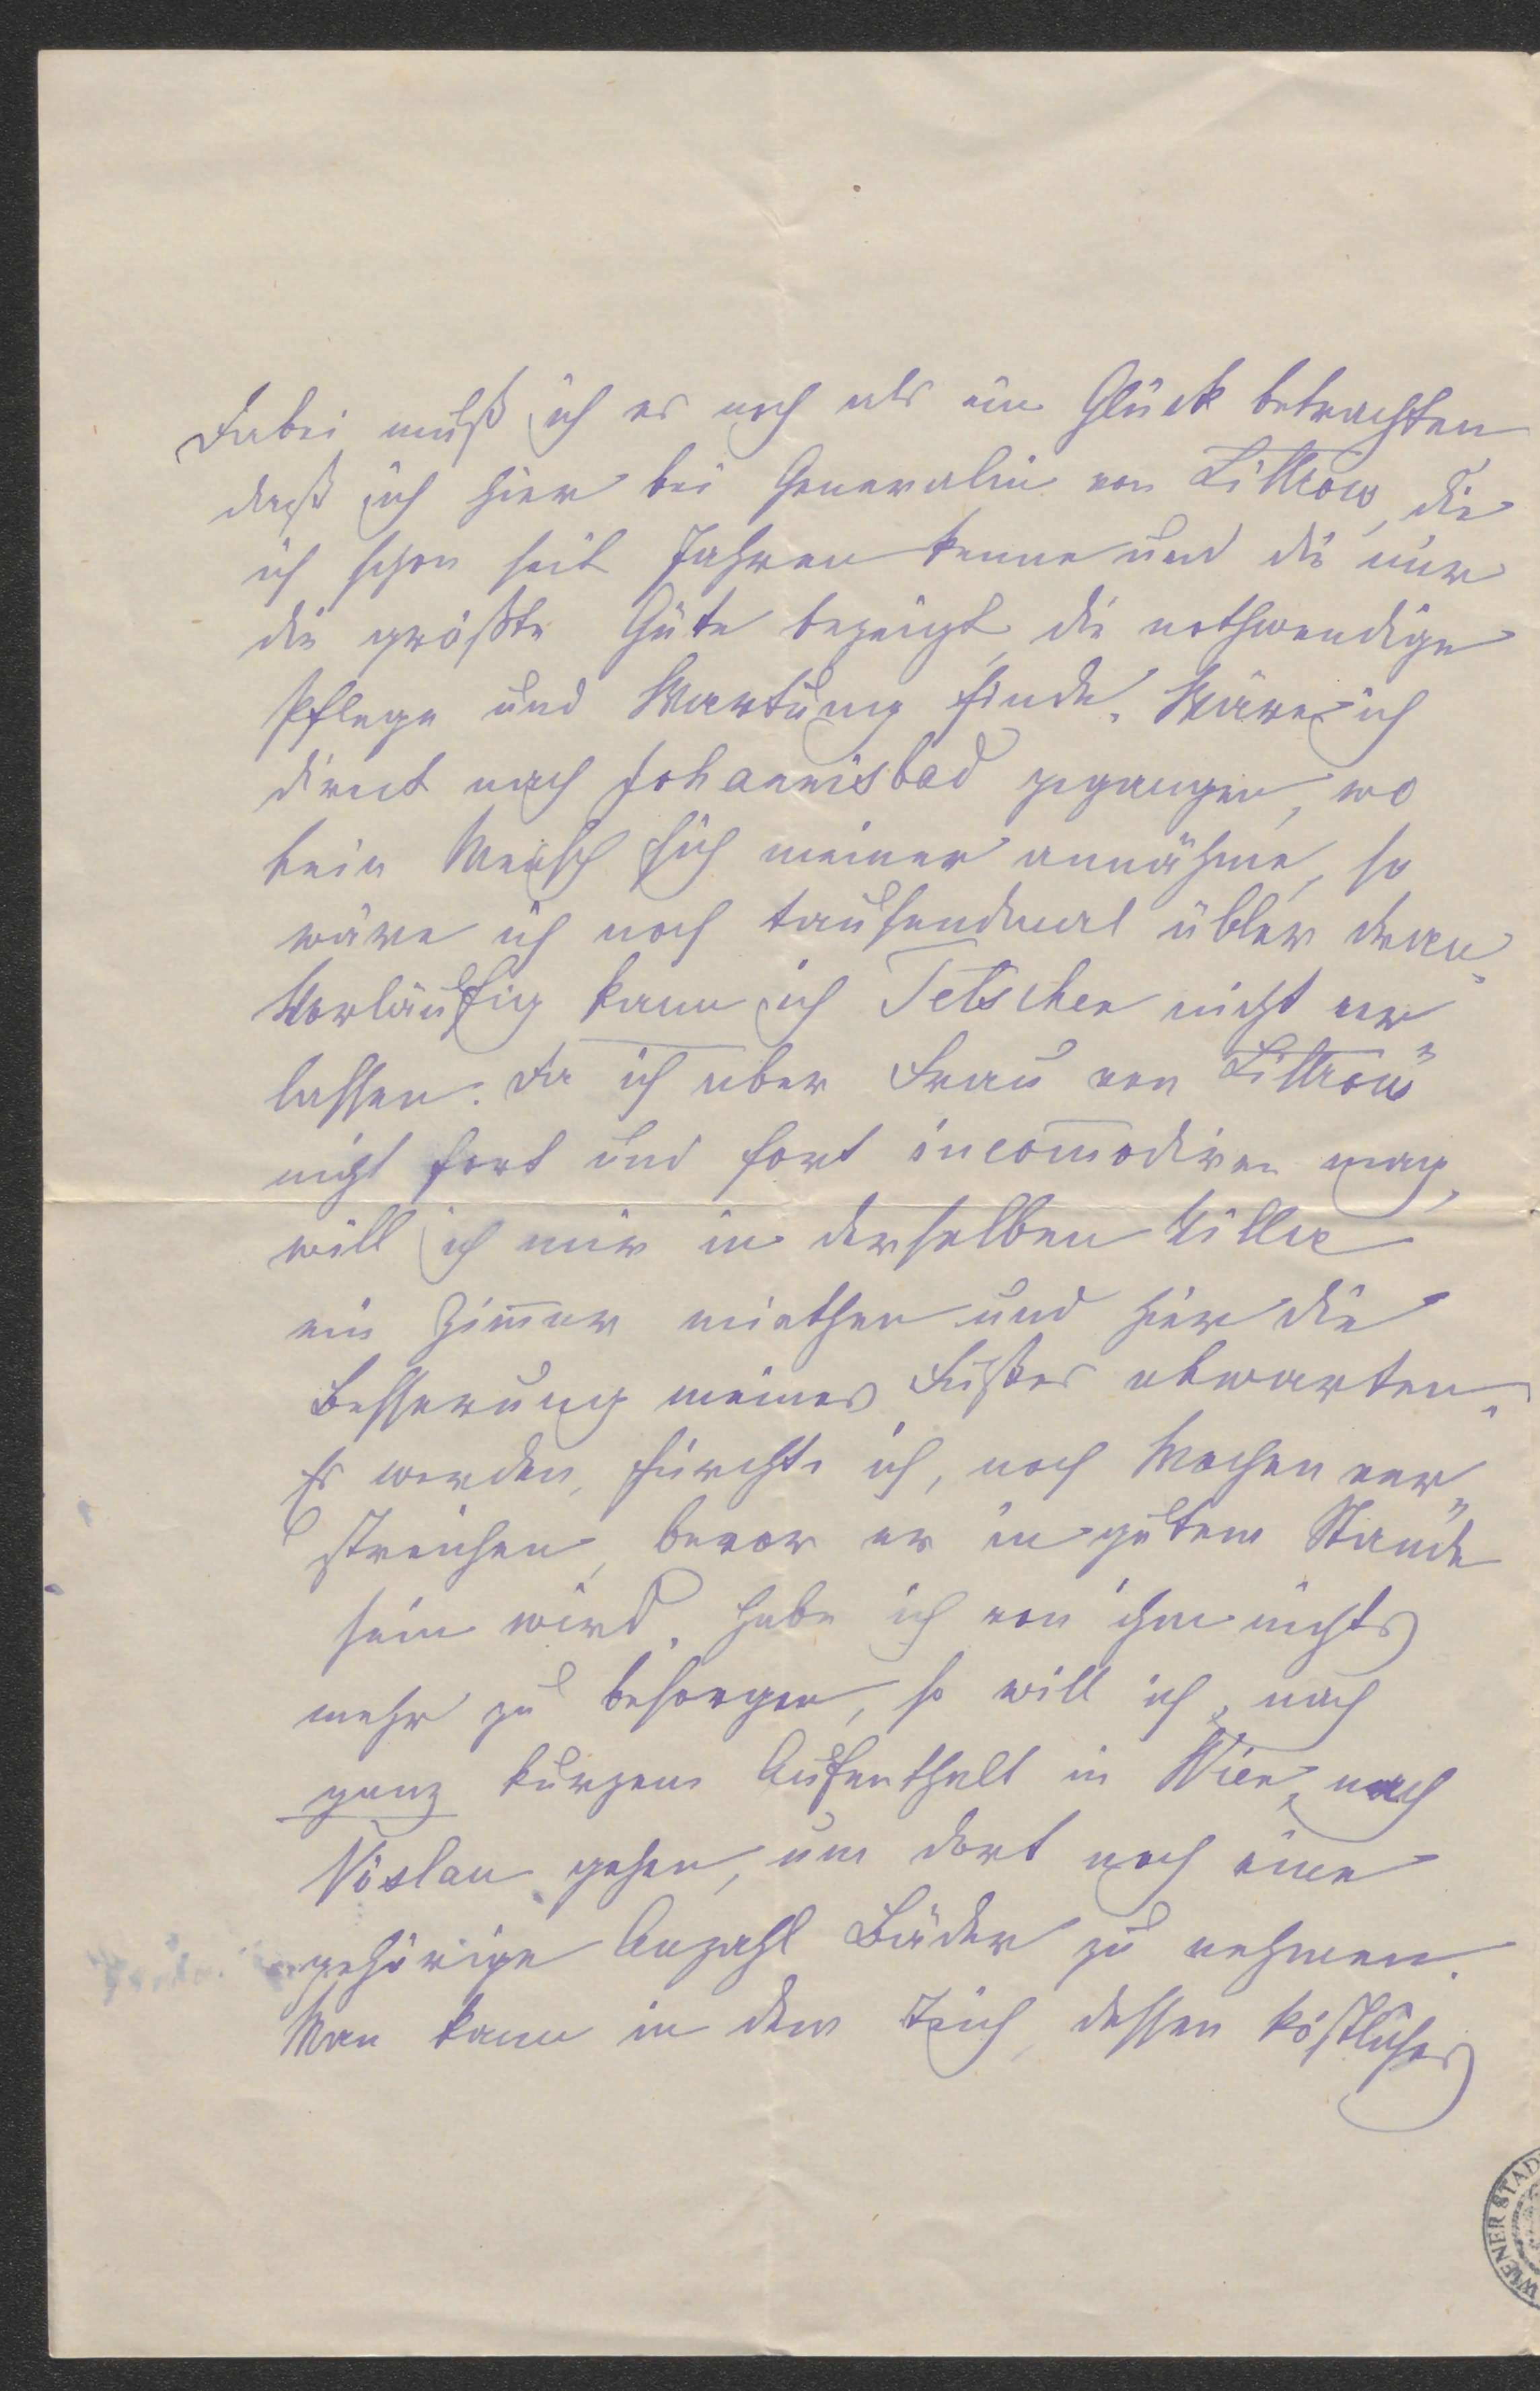 Dabei muß ich es noch als ein Glück betrachten
daß ich hier bei Generalin von Littrow, die
ich schon seit Jahren kenne und die mir
die größte Güte bezeigt, die nothwendige
Pflege und Wartung finde. Wäre ich
direct nach Johannisbad gegangen, wo
kein Mensch sich meiner annähme, so
wäre ich noch tausendmal übler dran.
Vorläufig kann ich Tetschen nicht ver„
lassen. Da ich aber Frau von Littrow
nicht fort und fort incom̅odiren mag,
will ich mir in derselben Villa
ein Zim̅er miethen und hier die
Besserung meines Fußes abwarten.
Es werden, fürchte ich, noch Wochen ver„
streichen, bevor er in gutem Stande
sein wird. Habe ich von ihm nichts
mehr zu besorgen, so will ich, nach
ganz kurzem Aufenthalt in Wien, nach
Vöslau gehen, um dort noch eine
gehörige Anzahl Bäder zu nehmen.
Man kann in dem Teich, dessen köstliches
WIENER STAD